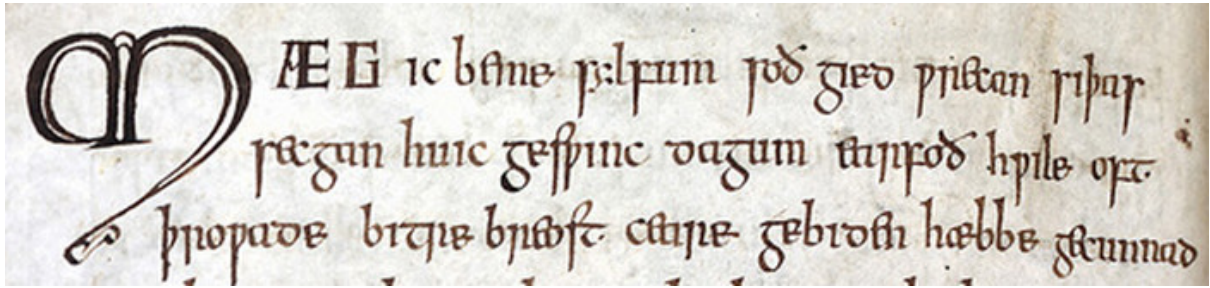 MÆG ic be me sylfum soð gied ƿrecan siþas
secgan hu ic gesƿinc dagum earfoð hƿile oft·
þroƿade bitre breost· ceare gebiden hæbbe gecunnad